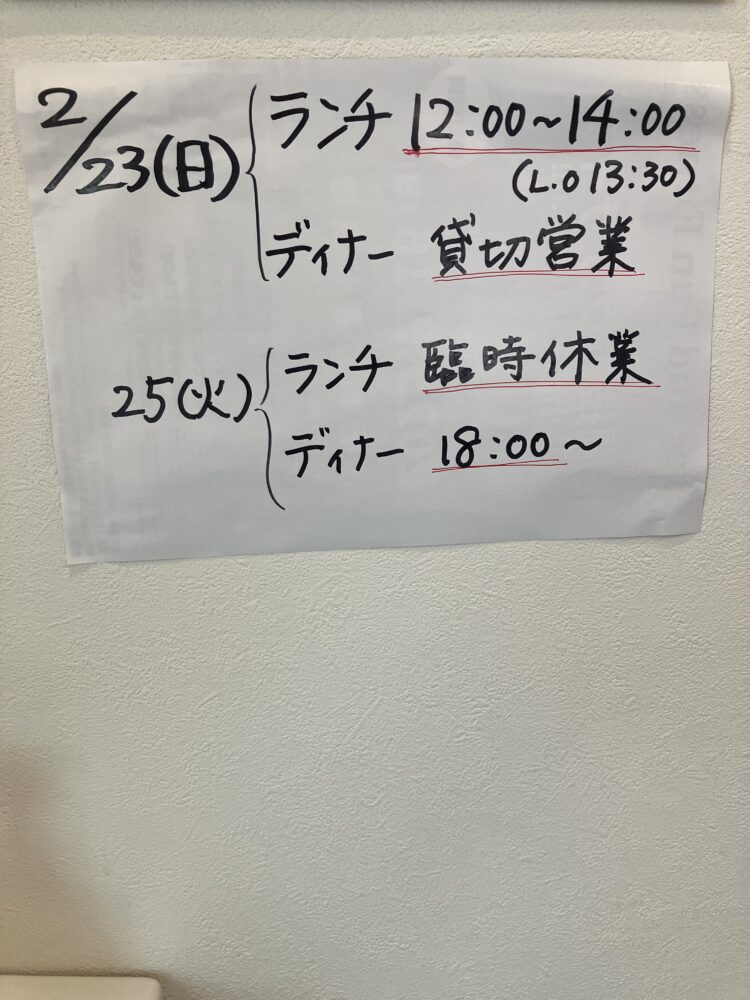 2/23(日) ランチ 12:00~14:00
(L.O 13:30)
ディナー 貸切営業
25(火) ランチ 臨時休業
ディナー 18:00~